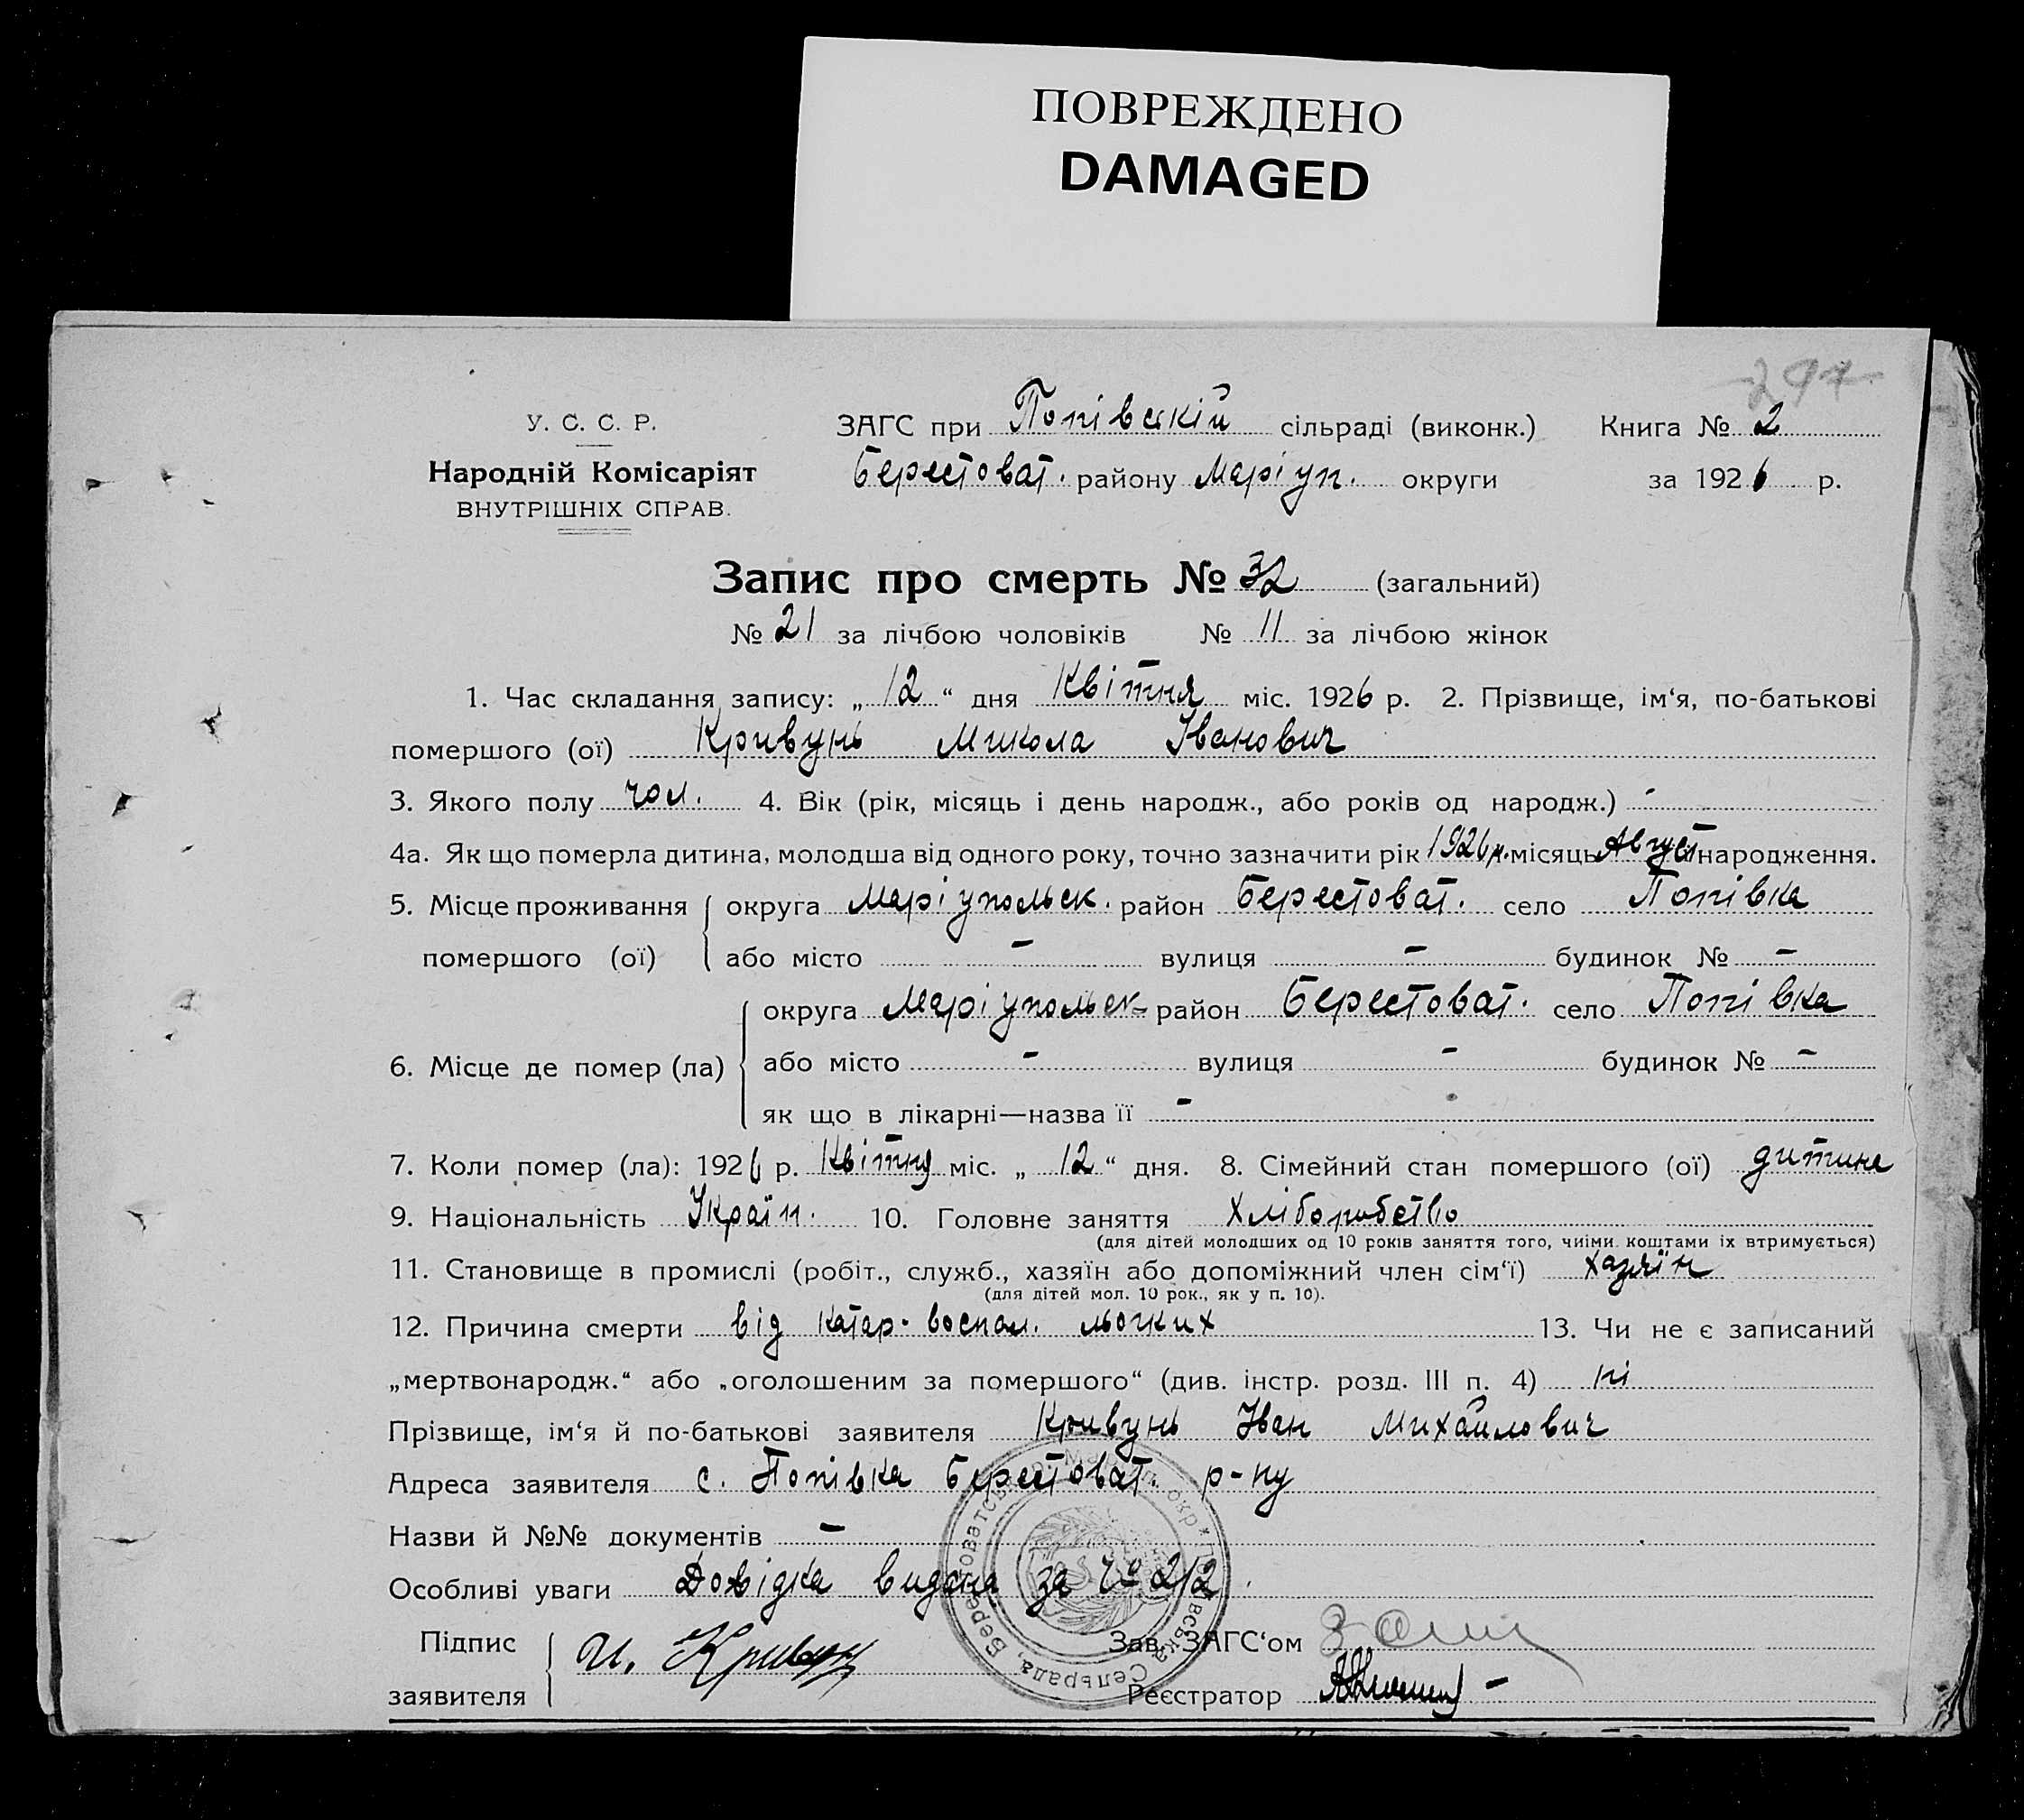 ПОВРЕЖДЕНО
DAMAGED
297
У. С. С. Р.
Народній Комісаріят
ВНУТРІШНІХ СПРАВ.
ЗАГС при Попівській сільраді (виконк.) Книга № 2
Берестоват. району Маріуп. округи за 1926 р.
Запис про смерть № 32 (загальний)
№ 21 за лічбою чоловіків № 11 за лічбою жінок
1. Час складання запису: „12“ дня Квітня міс. 1926 р. 2. Прізвище, ім‘я, по-батькові
помершого (ої) Кривунь Микола Іванович
3. Якого полу чол. 4. Вік (рік, місяць і день народж., або років од народж.) -
4а. Як що померла дитина, молодша від одного року, точно зазначити рік 1926 р. місяць Август народження.
5. Місце проживання помершого (ої) округа Маріупольск. район Берестоват. село Попівка
або місто - вулиця - будинок № -
6. Місце де помер (ла) округа Маріупольск район Берестоват. село Попівка
або місто - вулиця - будинок № -
як що в лікарні—назва її -
7. Коли помер (ла): 1926 р. Квітня міс. „12“ дня. 8. Сімейний стан помершого (ої) дитина
9. Національність Україн. 10. Головне заняття Хліборобство
(для дітей молодших од 10 років заняття того, чиїми коштами їх втримується)
11. Становище в промислі (робіт., служб., хазяїн або допоміжний член сім‘ї) хазяїн
(для дітей мол. 10 рок., як у п. 10).
12. Причина смерти від катар. воспал. льогких 13. Чи не є записаний
„мертвонародж.“ або „оголошеним за помершого“ (див. інстр. розд. III п. 4) ні
Прізвище, ім‘я й по-батькові заявителя Кривунь Іван Михайлович
Адреса заявителя с. Попівка Берестоват. р-ну
Назви й №№ документів -
Особливі уваги Довідка видана за № 212
Підпис заявителя И. Кривун
Зав. ЗАГС‘ом
Реєстратор